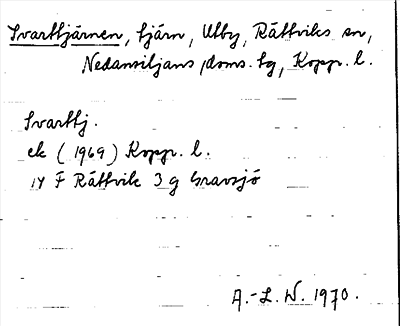 Svarttjärnen, tjärn, Utby, Rättviks sn,
Nedansiljans doms. tg, Kopp. l.
Svarttj.
ek (1969) Kopp. l.
14 F Rättvik 3 g Gravsjö
A.-L. W. 1970.